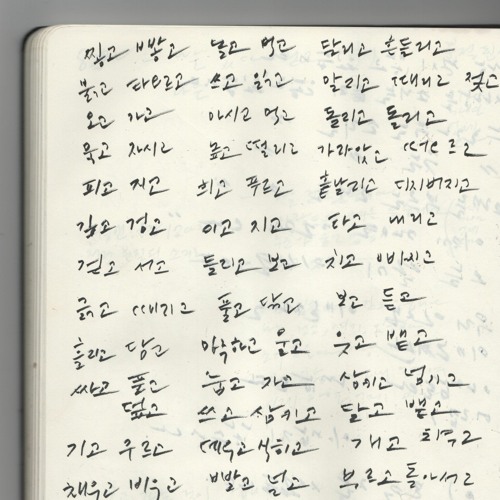 찧고 빻고 널고 먹고 달리고 흔들리고
붉고 타오르고 쓰고 읽고 말리고 때리고 젖고
오고 가고 마시고 먹고 돌리고 돌리고
묵고 자시고 늙고 떨리고 가라앉고 떠오르고
피고 지고 희고 푸르고 흩날리고 뒤집어지고
깁고 검고 이고 지고 타고 내리고
걷고 서고 들리고 보고 치고 빠지고
긁고 때리고 풀고 닦고 보고 듣고
흘리고 담고 악착하고 울고 웃고 뱉고
싸고 풀고 눕고 가고 삼키고 넘기고
덮고 쓰고 삼키고 달고 뱉고
기고 구르고 깨우고 식히고 개고
채우고 비우고 빨고 널고 부르고 돌아서고